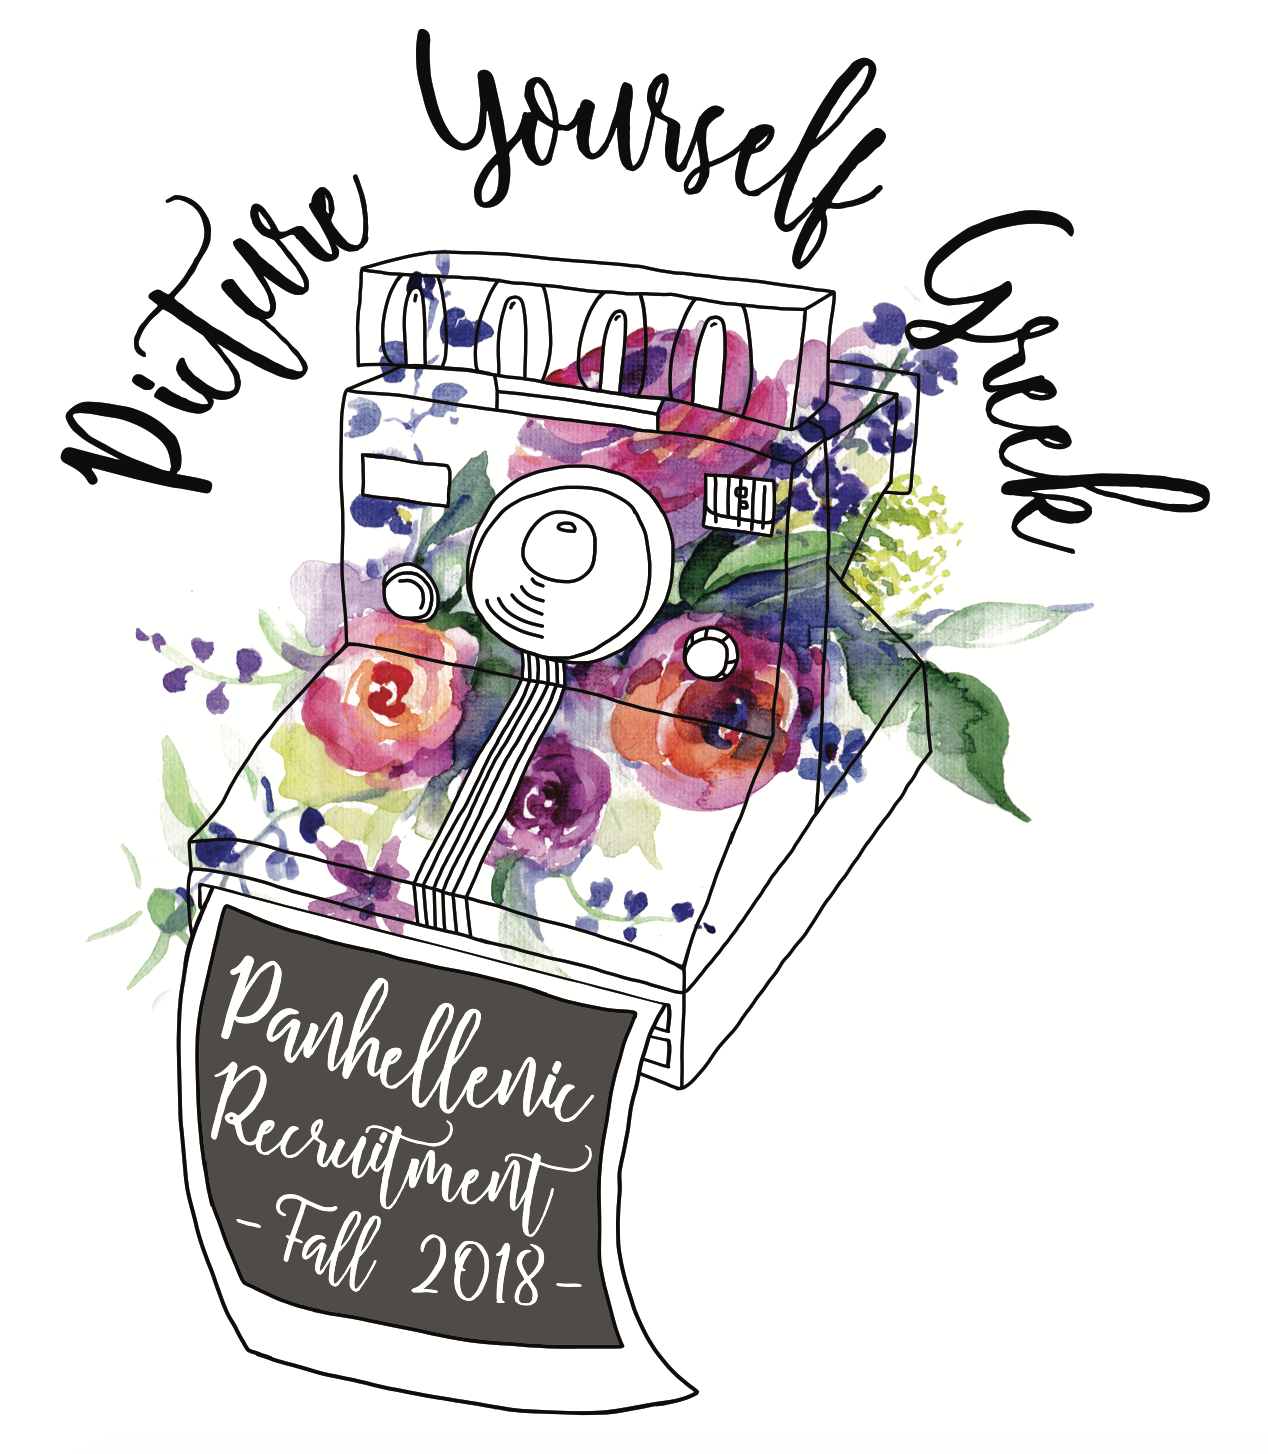 Picture Yourself Greek
Panhellenic
Recruitment
- Fall 2018 -